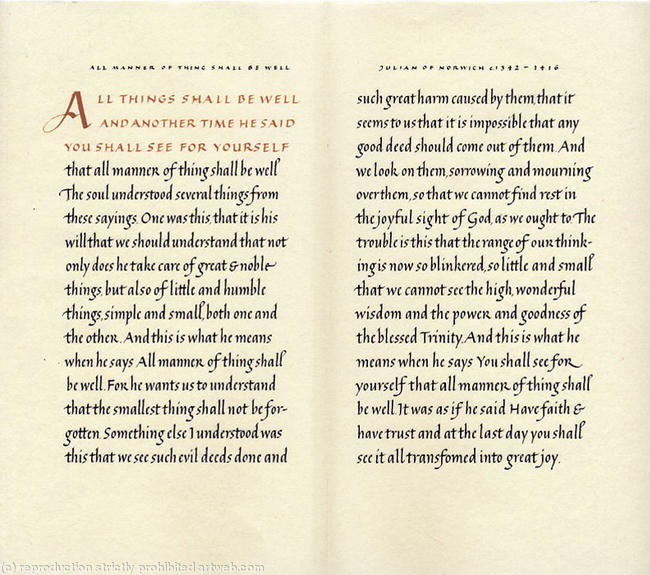 ALL MANNER OF THING SHALL BE WELL
ALL THINGS SHALL BE WELL
AND ANOTHER TIME HE SAID
YOU SHALL SEE FOR YOURSELF
that all manner of thing shall be well
The soul understood several things from
these sayings. One was this that it is his
will that we should understand that not
only does he take care of great & noble
things, but also of little and humble
things, simple and small, both one and
the other. And this is what he means
when he says All manner of thing shall
be well. For he wants us to understand
that the smallest thing shall not be for-
gotten. Something else I understood was
this that we see such evil deeds done and
JULIAN OF NORWICH c1342 - 1416
such great harm caused by them, that it
seems to us that it is impossible that any
good deed should come out of them. And
we look on them, sorrowing and mourning
over them, so that we cannot find rest in
the joyful sight of God, as we ought to. The
trouble is this that the range of our think-
ing is now so blinkered, so little and small
that we cannot see the high, wonderful
wisdom and the power and goodness of
the blessed Trinity. And this is what he
means when he says You shall see for
yourself that all manner of thing shall
be well. It was as if he said Have faith &
have trust and at the last day you shall
see it all transfomed into great joy.
(c) reproduction strictly prohibited artweb.com